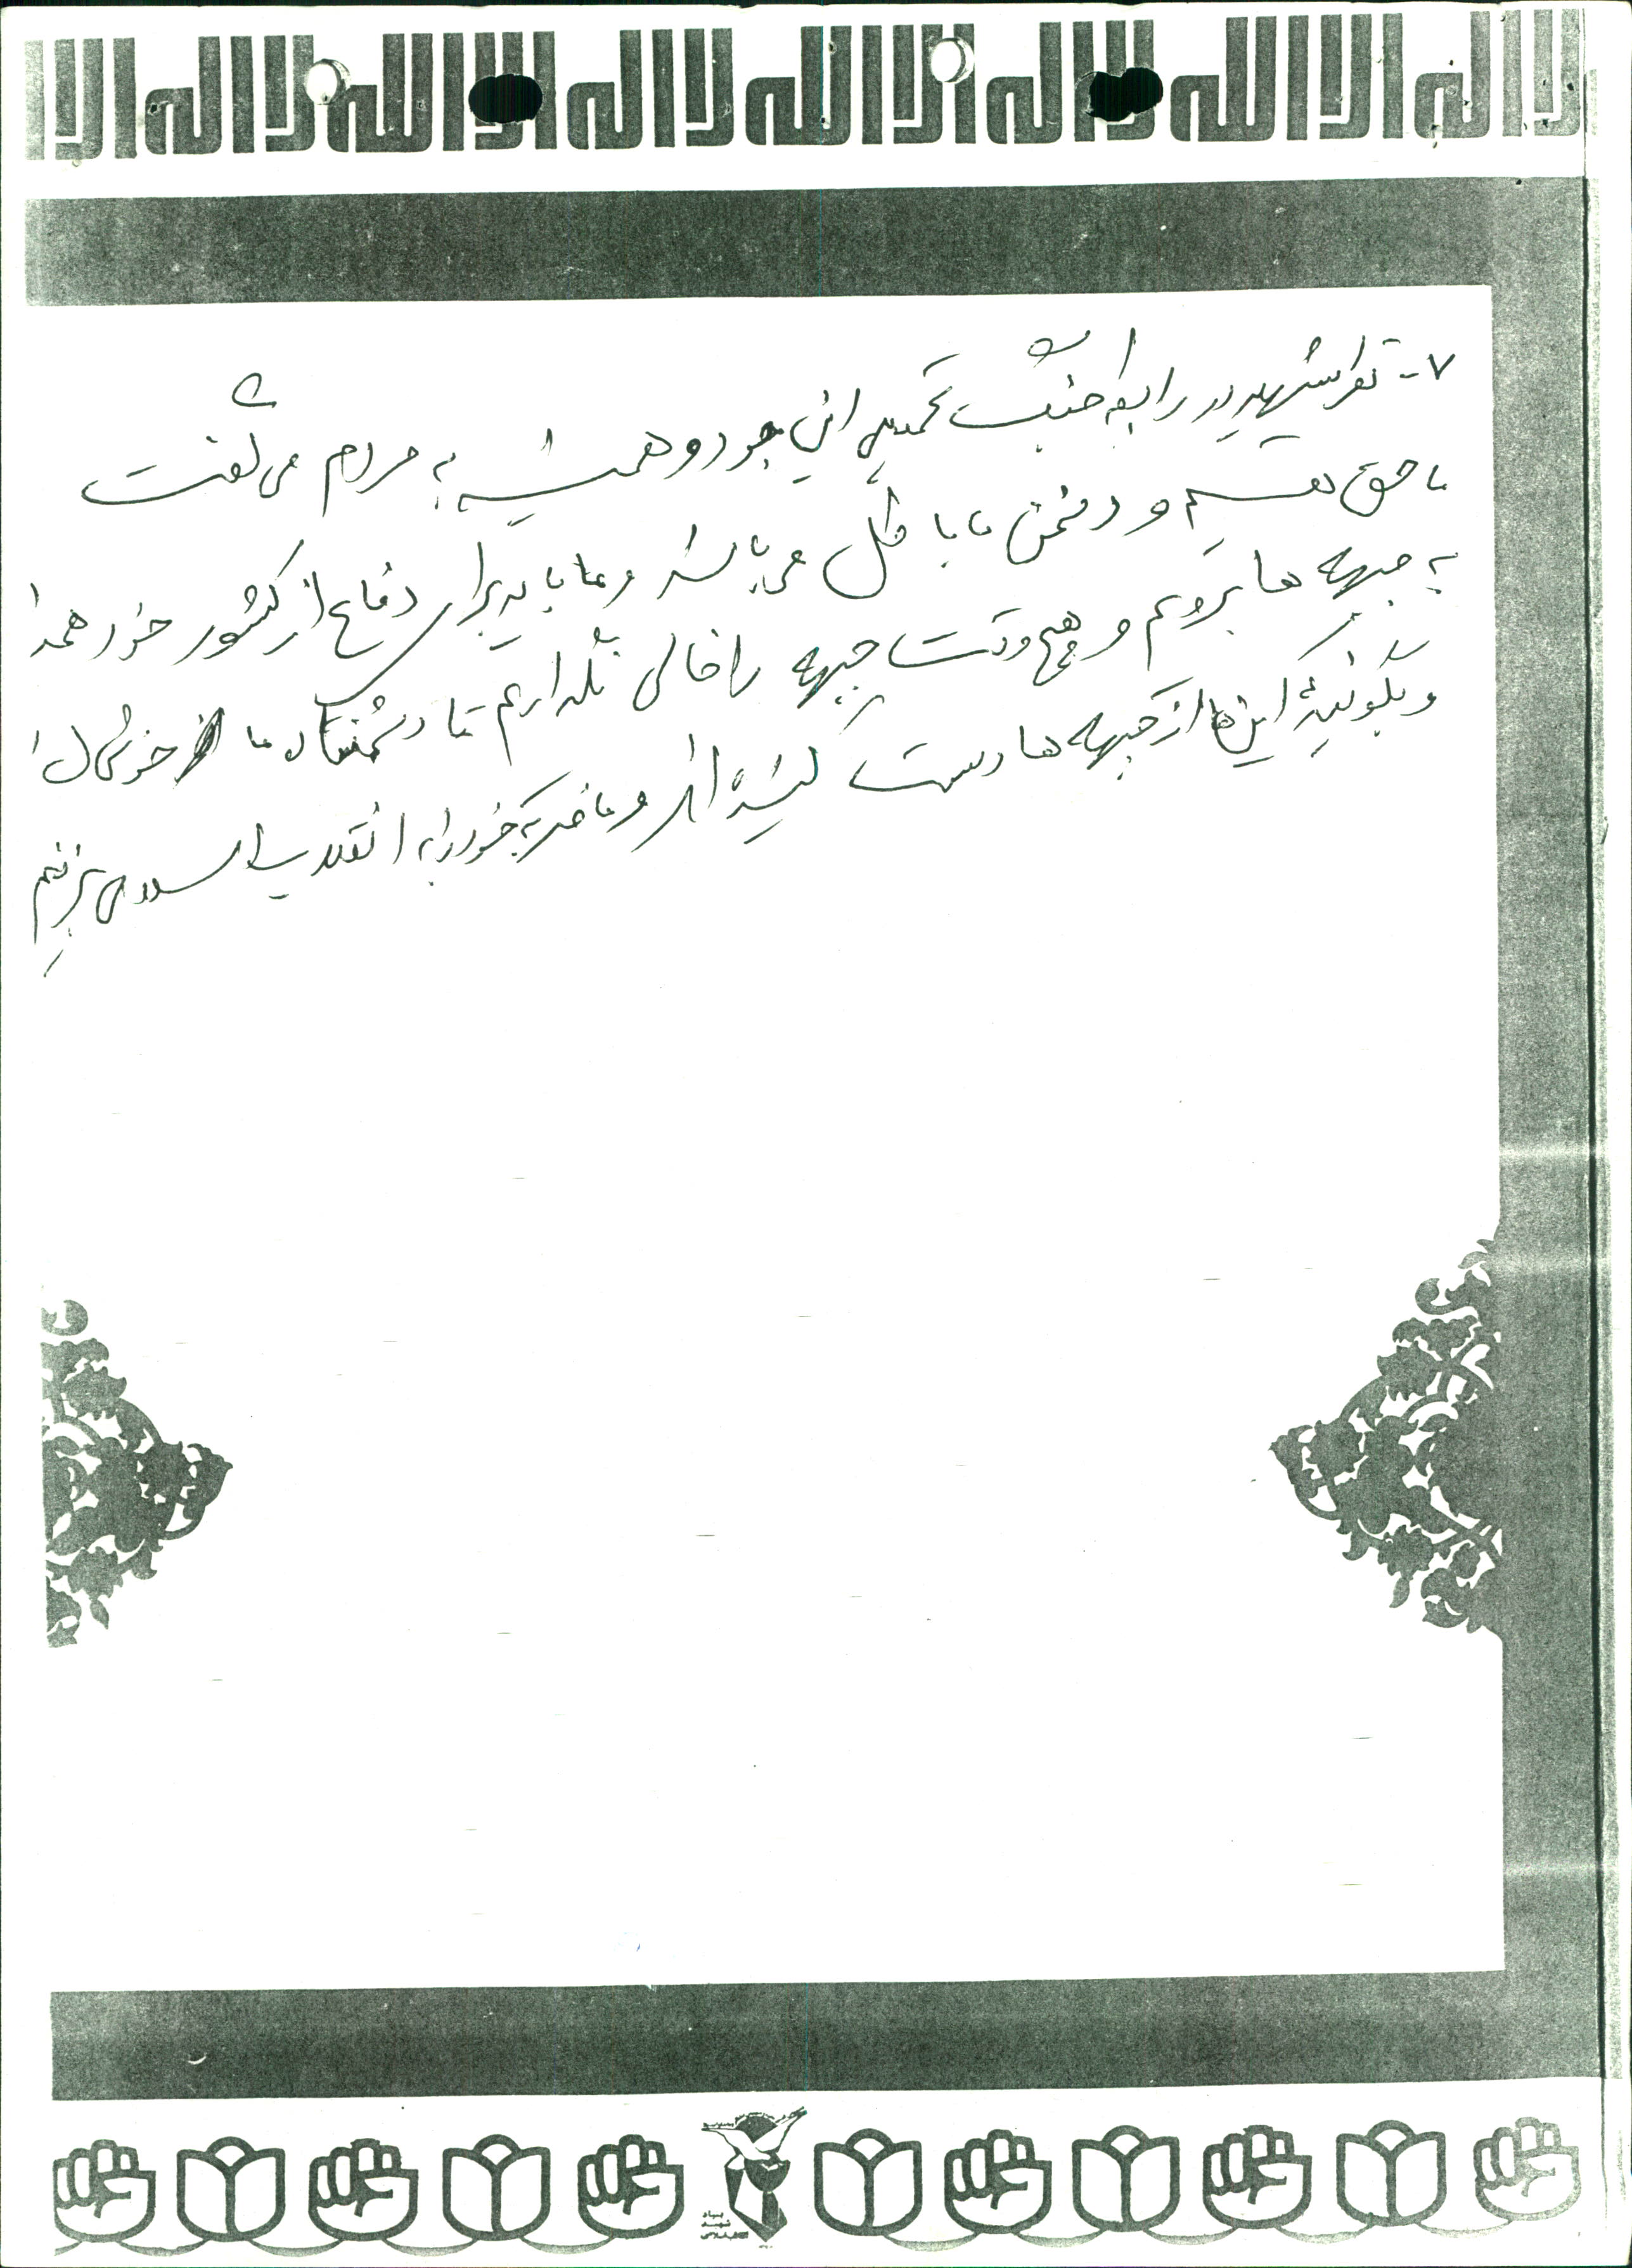 لا اله الا الله لا اله الا الله لا اله الا الله لا اله الا
۷- نظر شهید در رابطه با جنگ تحمیلی این بود و همیشه به مردم می گفت
ما حق هستیم و دشمن ما باطل می باشد و ما باید برای دفاع از کشور خود همه
به جبهه ها برویم و هیچ وقت جبهه را خالی نگذاریم تا دشمنان ما خوشحال
و بگویند این ها از جبهه ها دست کشیده اند و ما ضربه خود را به انقلاب اسلامی بزنیم
بنیاد
شهید
انقلاب اسلامی